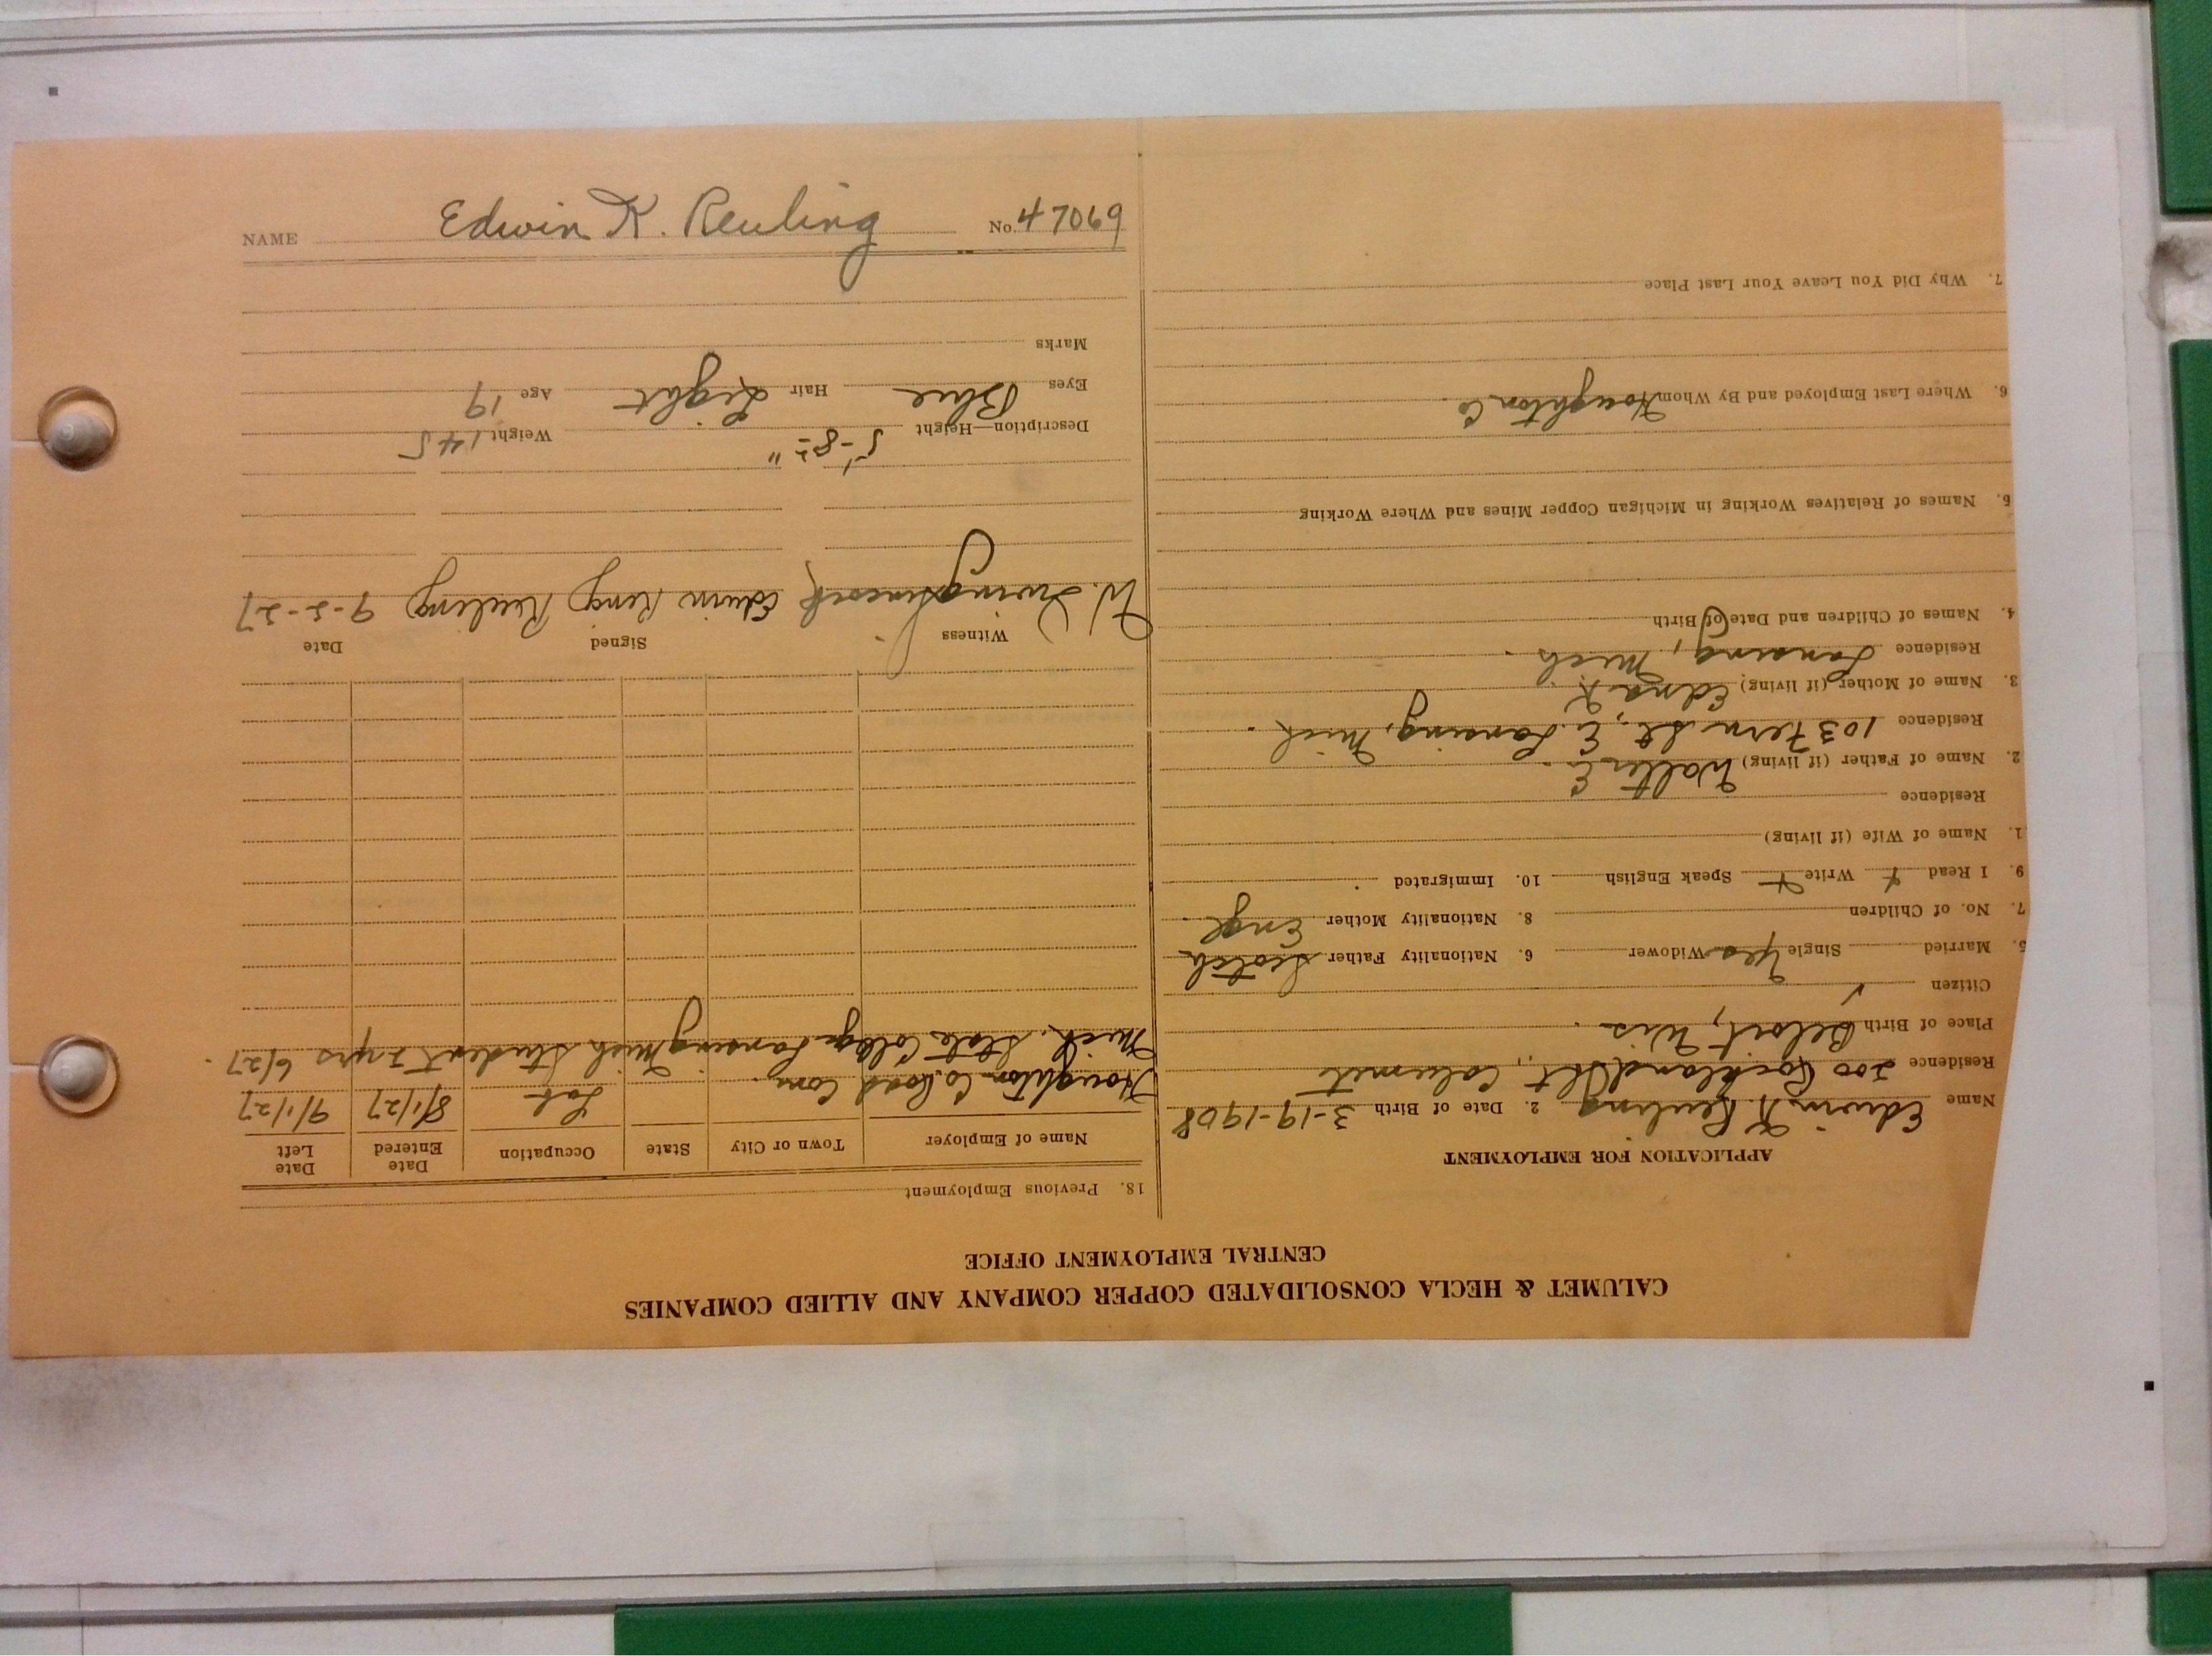 NAME Edwin K. Reuling No. 47069
CALUMET & HECLA CONSOLIDATED COPPER COMPANY AND ALLIED COMPANIES
CENTRAL EMPLOYMENT OFFICE
APPLICATION FOR EMPLOYMENT
Name Edwin K. Reuling 2. Date of Birth 3-19-1908
Residence 200 Rockland St., Calumet
Place of Birth Beloit, Wis.
Citizen ✓
5. Married Single Yes Widower 6. Nationality Father Scotch
7. No. of Children 8. Nationality Mother Engl.
9. I Read Write Speak English 10. Immigrated
1. Name of Wife (if living)
Residence
2. Name of Father (if living) Walter E.
Residence 103 Fern St., E. Lansing, Mich.
3. Name of Mother (if living) Edna K.
Residence Lansing, Mich.
4. Names of Children and Date of Birth
5. Names of Relatives Working in Michigan Copper Mines and Where Working
6. Where Last Employed and By Whom Houghton Co
7. Why Did You Leave Your Last Place
18. Previous Employment
Name of Employer Town or City State Occupation Date Entered Date Left
Houghton Co. Road Com. Lab 8/1/27 9/1/27
Mich. State College Lansing Mich Student 2 yrs 6/27.
Witness Signed Date
W. Irving Edwin King Reuling 9-2-27
Description—Height 5'-8" Weight 145
Eyes Blue Hair Light Age 19
Marks